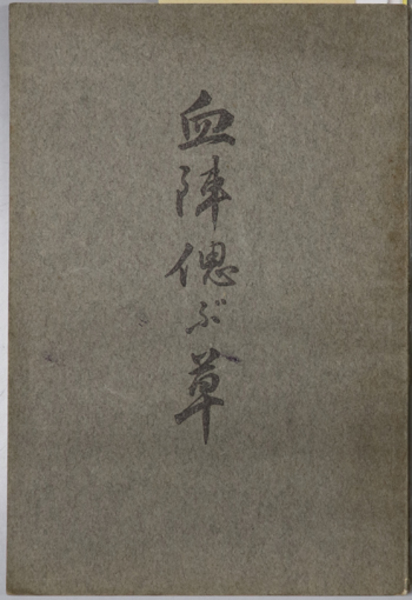 血陣偲ぶ草